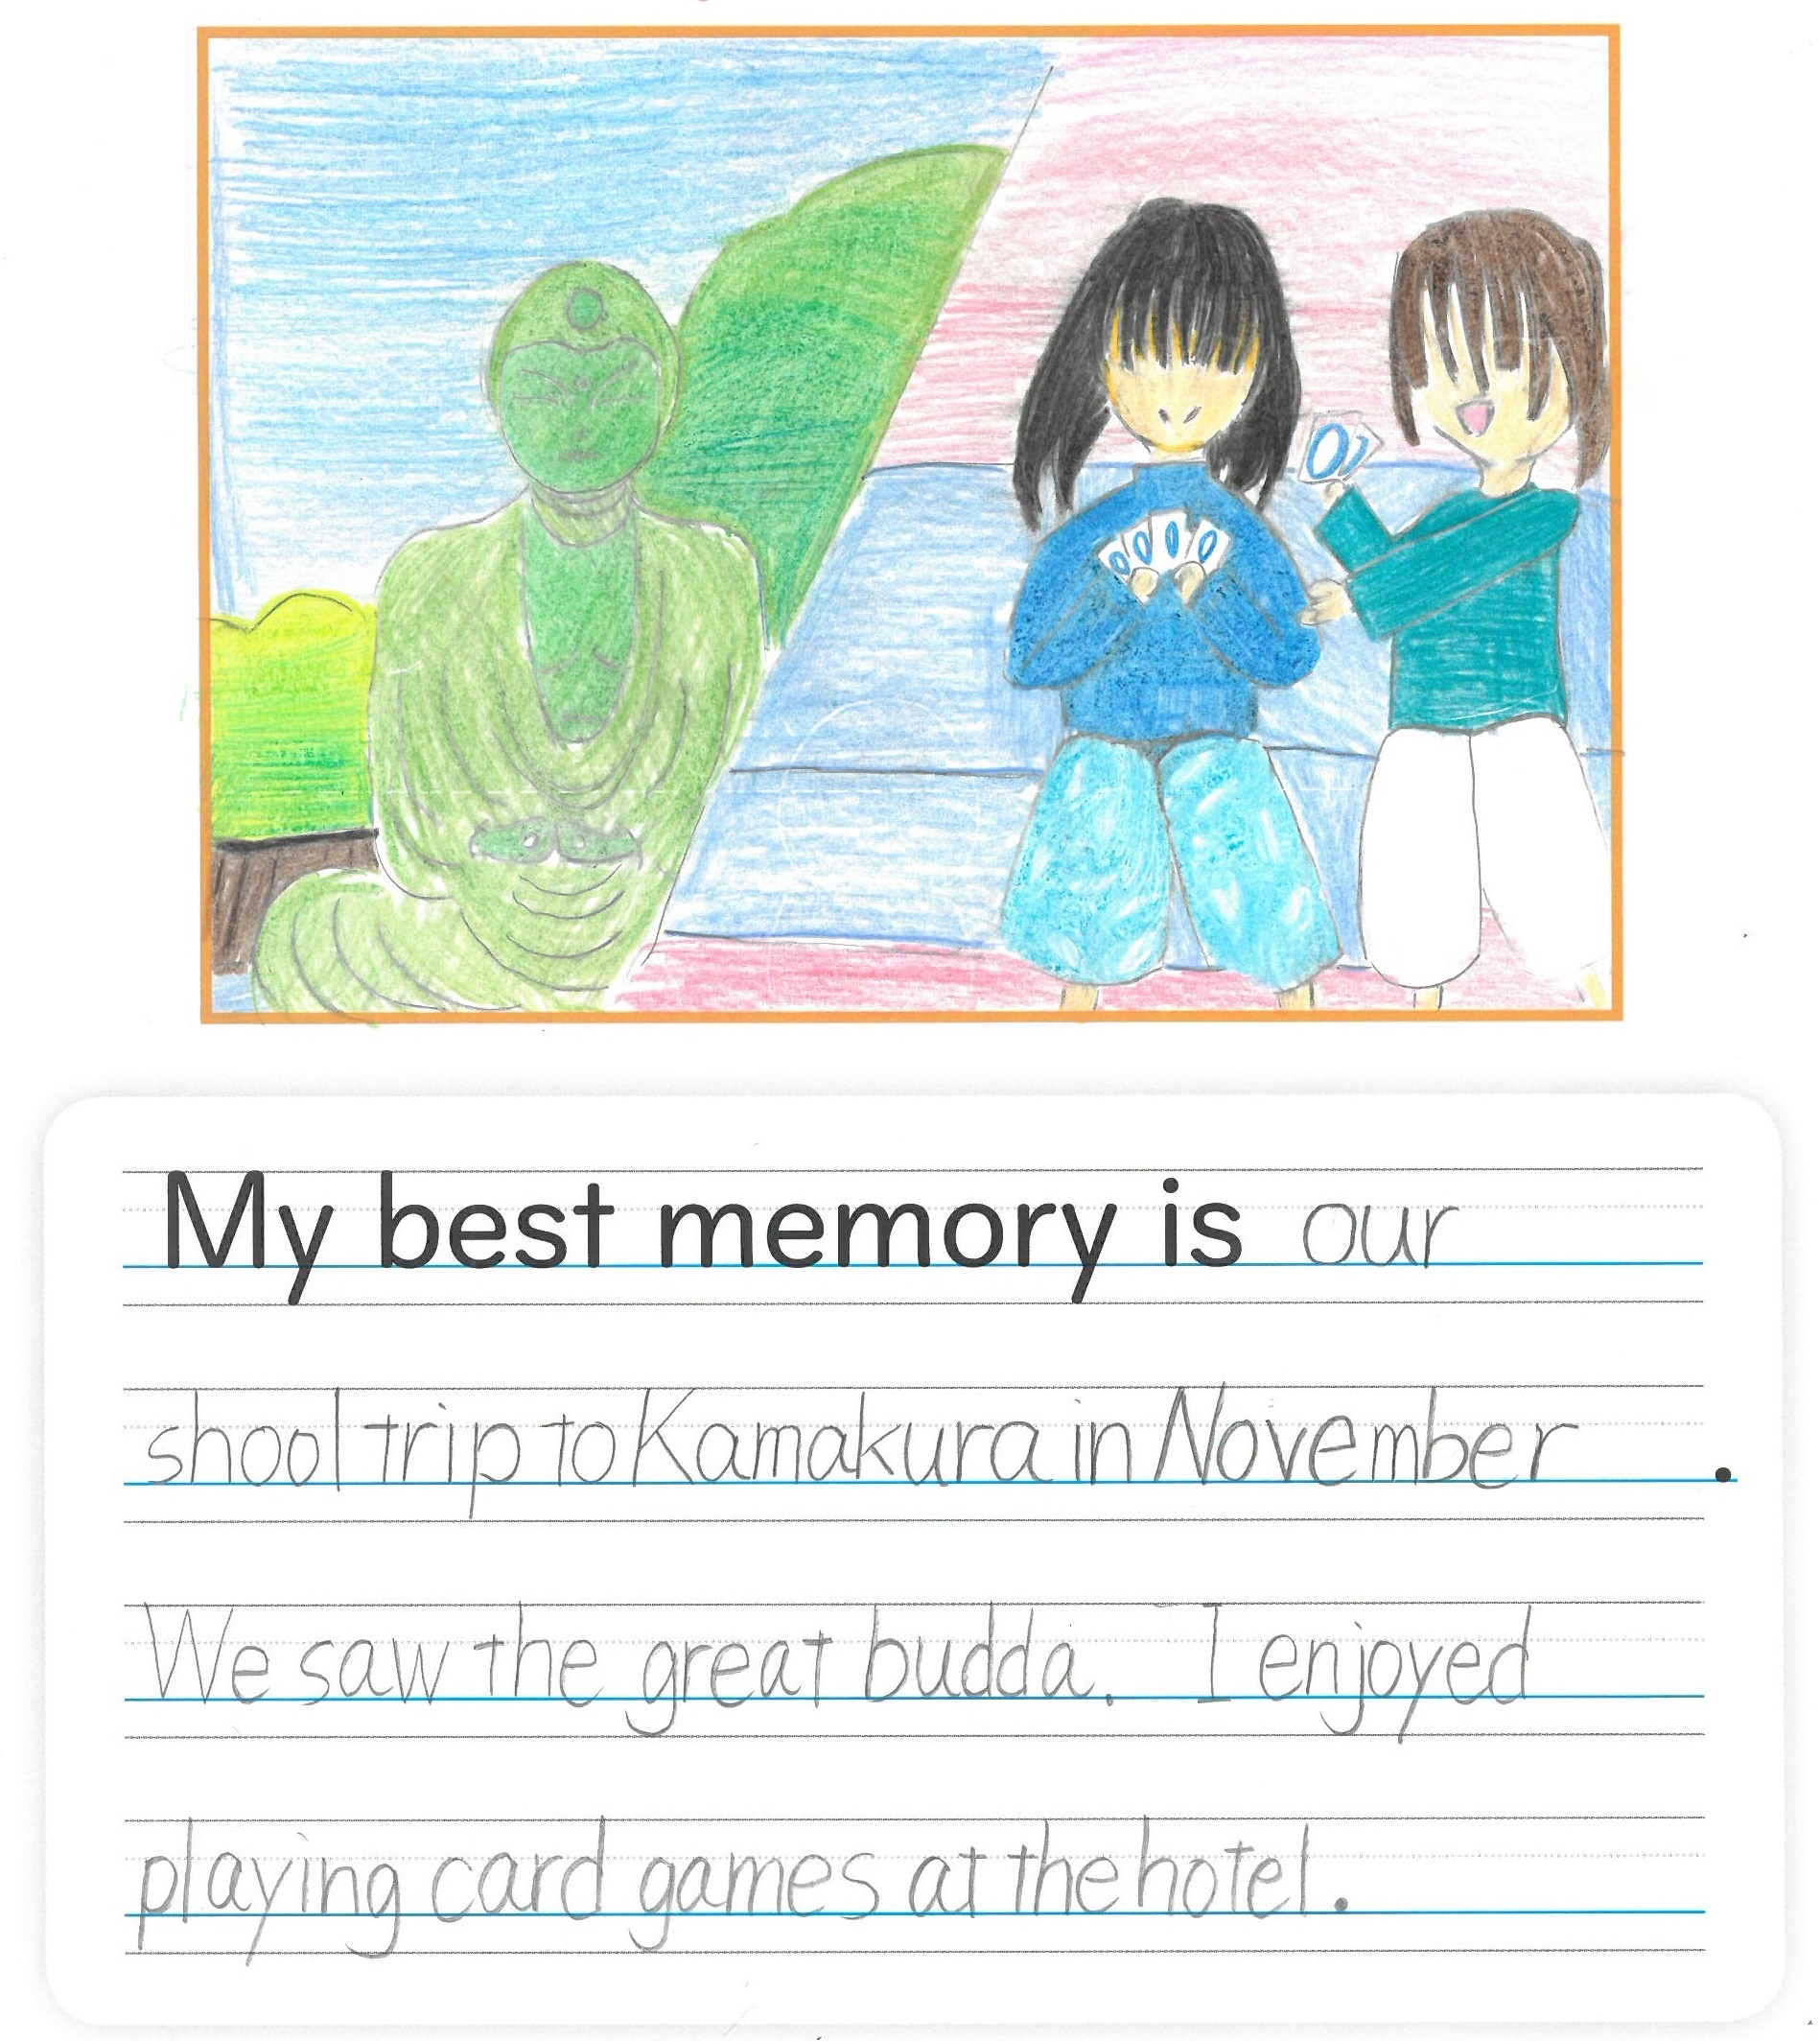 My best memory is our
shool trip to Kamakura in November .
We saw the great budda. I enjoyed
playing card games at the hotel.